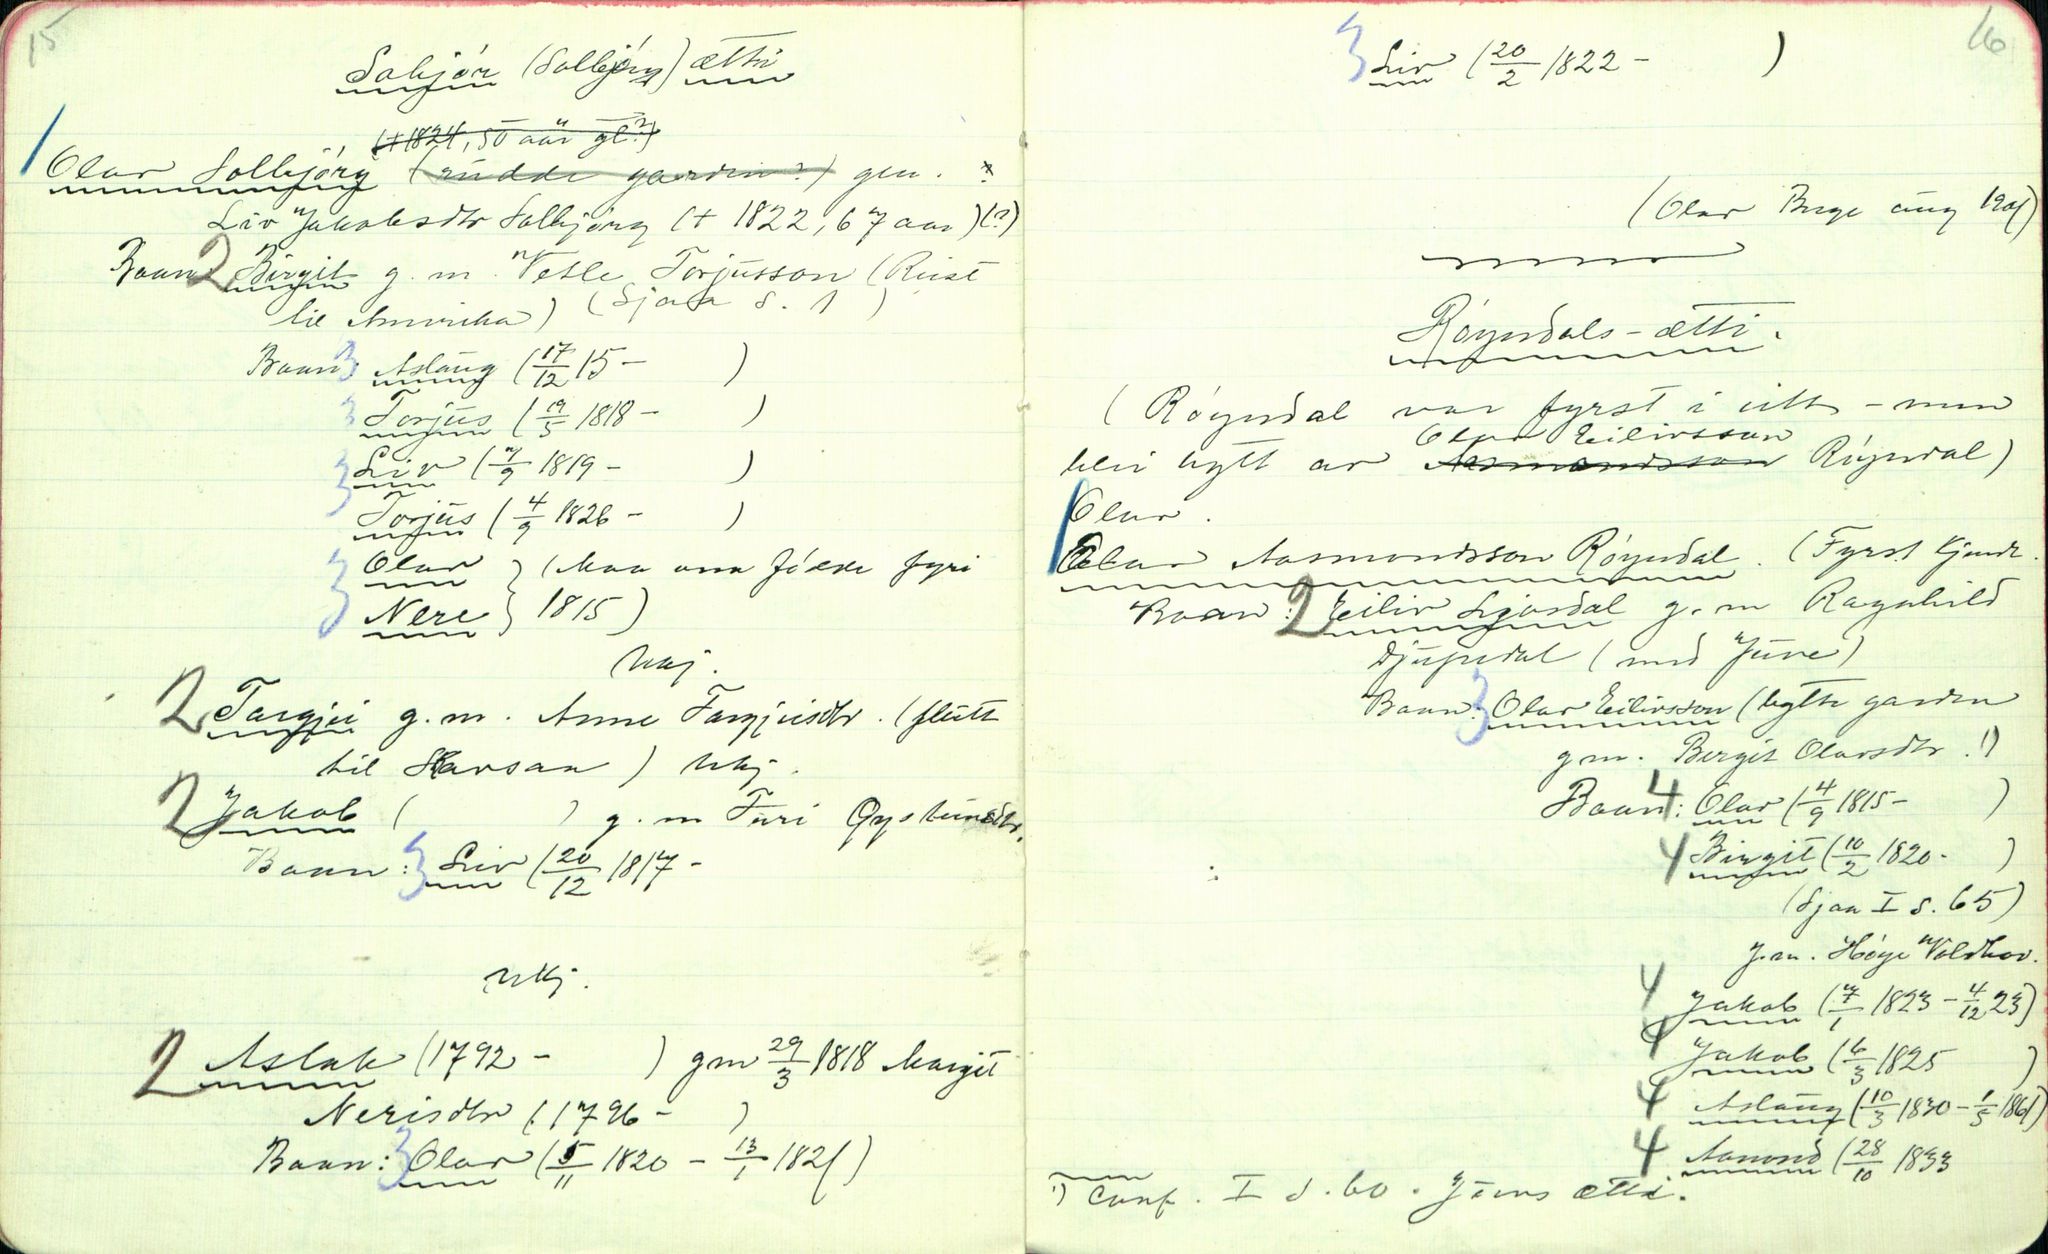 15
Solbjør (Solbjørg) ætti
(+ 1824, 50 aar gl.?)
1 Olav Solbjørg (rudde garden?) gm. ?
Liv Jakobsdtr Solbjørg (+ 1822, 67 aar) (?)
Baan 2 Birgit g. m. Vetle Torjusson (Reist
til Amerika) (Sjaa S. 1)
Baan 3 Aslaug (17/12 15 - )
3 Torjus (19/5 1818 - )
3 Liv (7/9 1819 - )
3 Torjus (4/9 1826 - )
3 Olav } (Maa vera fødde fyri
3 Nere } 1815)
Ukj.
2 Targjei g. m. Anne Targjeisdtr. (flutt
til Skarsaa) Ukj.
2 Jakob ( ) g. m Turi Øysteinsdtr.
Baan: 3 Liv (20/12 1817 -
Ukj.
2 Aslak (1792 - ) gm 29/3 1818 Margit
Nerisdtr (1796 - )
Baan: 3 Olav (5/11 1820 - 13/1 1821)
16
3 Liv (20/2 1822 - )
(Olav Berge aug 1901)
Røyndals-ætti.
(Røyndal var fyrst i itt - men
blei bytt av Olav Eilivsson Aasmundsson Røyndal)
Olav.
1 Olav Aasmundsson Røyndal. (Fyrst kjende.
Baan: 2 Eiliv Ljosdal g. m Ragnhild
Djupedal (med Juve)
Baan: 3 Olav Eilivsson (bytte garden
gm. Bergit Olavsdtr. 1)
Baan: 4 Olav (4/9 1815 - )
4 Birgit (10/2 1820 - )
(Sjaa I s. 65)
g. m. Høye Voldhov.
4 Jakob (7/1 1823 - 4/12 23)
4 Jakob (6/3 1825 )
4 Aslaug (10/3 1830 - 1/5 1861)
4 Aamund (28/10 1833
1) Conf. I s. 60. Juvs ætti.